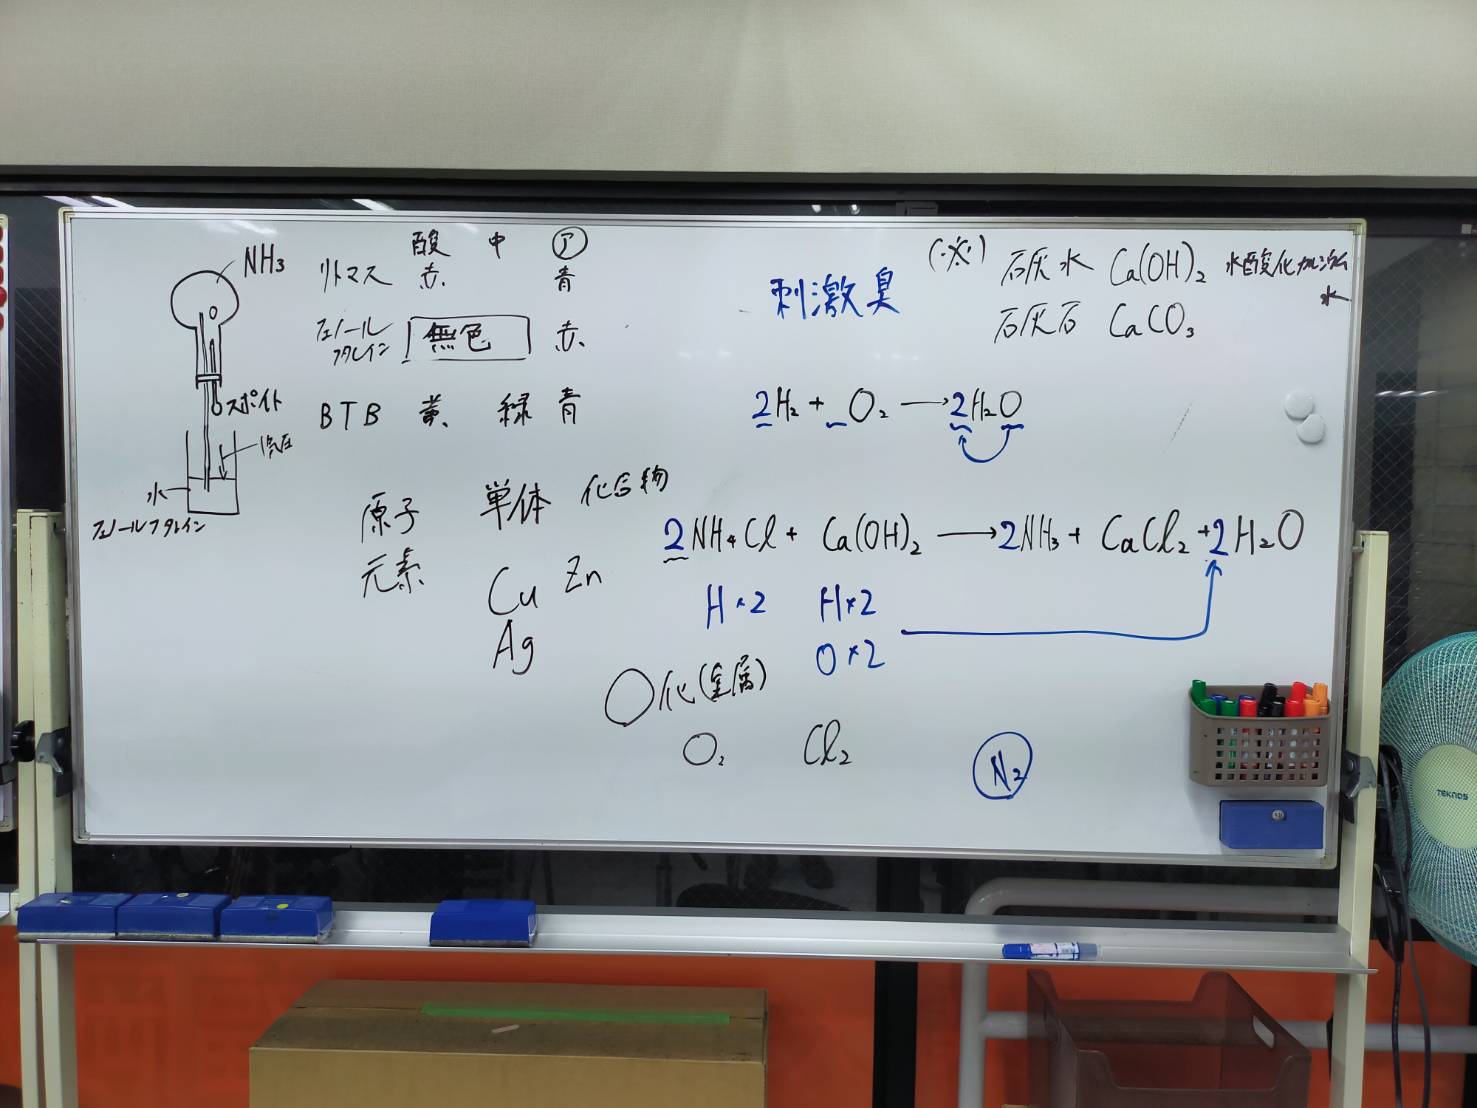 NH₃
スポイト
気圧
水
フェノールフタレイン
酸 中 ㋐
リトマス 赤 青
フェノールフタレイン 無色 赤
BTB 黄 緑 青
原子 単体 化合物
元素
Cu Zn
Ag
刺激臭
(※) 石灰水 Ca(OH)₂ 水酸化カルシウム水
石灰石 CaCO₃
2H₂ + O₂ → 2H₂O
2NH₄Cl + Ca(OH)₂ → 2NH₃ + CaCl₂ + 2H₂O
H×2 H×2
O×2
○化(金属)
O₂ Cl₂
N₂
TEKNOS